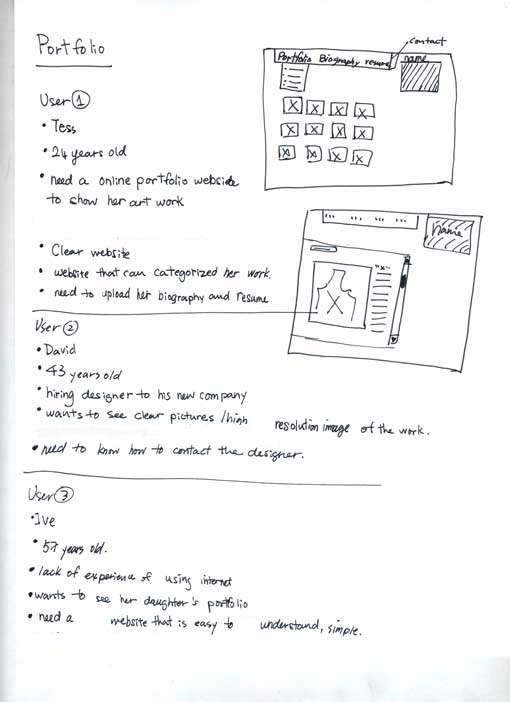 Portfolio
contact
Portfolio Biography resume
name
User ①
• Tess
• 24 years old
• need a online portfolio webside
to show her art work
• Clear website
• website that can categorized her work.
• need to upload her biography and resume
name
"x"
User ②
• David
• 43 years old
• hiring designer to his new company
• wants to see clear pictures /high resolution image of the work.
• need to know how to contact the designer.
User ③
• Ive
• 57 years old.
• lack of experience of using internet
• wants to see her daughter's portfolio
• need a website that is easy to understand, simple.